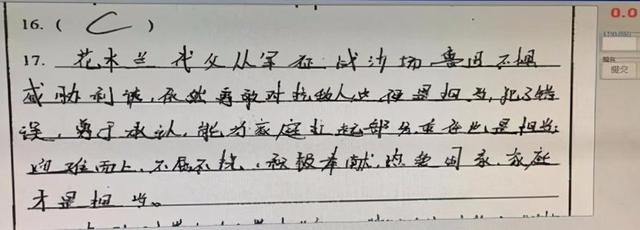 16. ( C )
17. 花木兰代父从军征战沙场 不惧
威胁利诱，依然勇敢对抗敌人 担当，犯了错
误，勇于承认，能为家庭 起部分责任也是担当；
迎难而上，不屈不挠，积极奉献 国家、家庭
才是担当。
0.0
提交